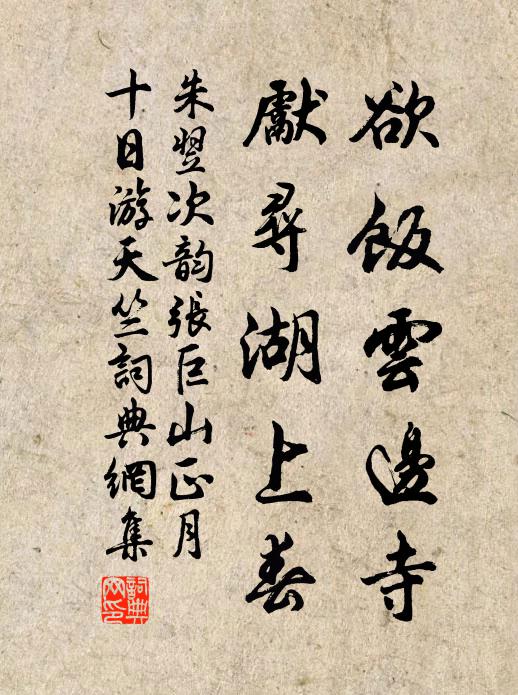 欲飯雲邊寺
獻尋湖上春
朱翌次韵張巨山正月
十日游天竺詞典網集
詞典網印